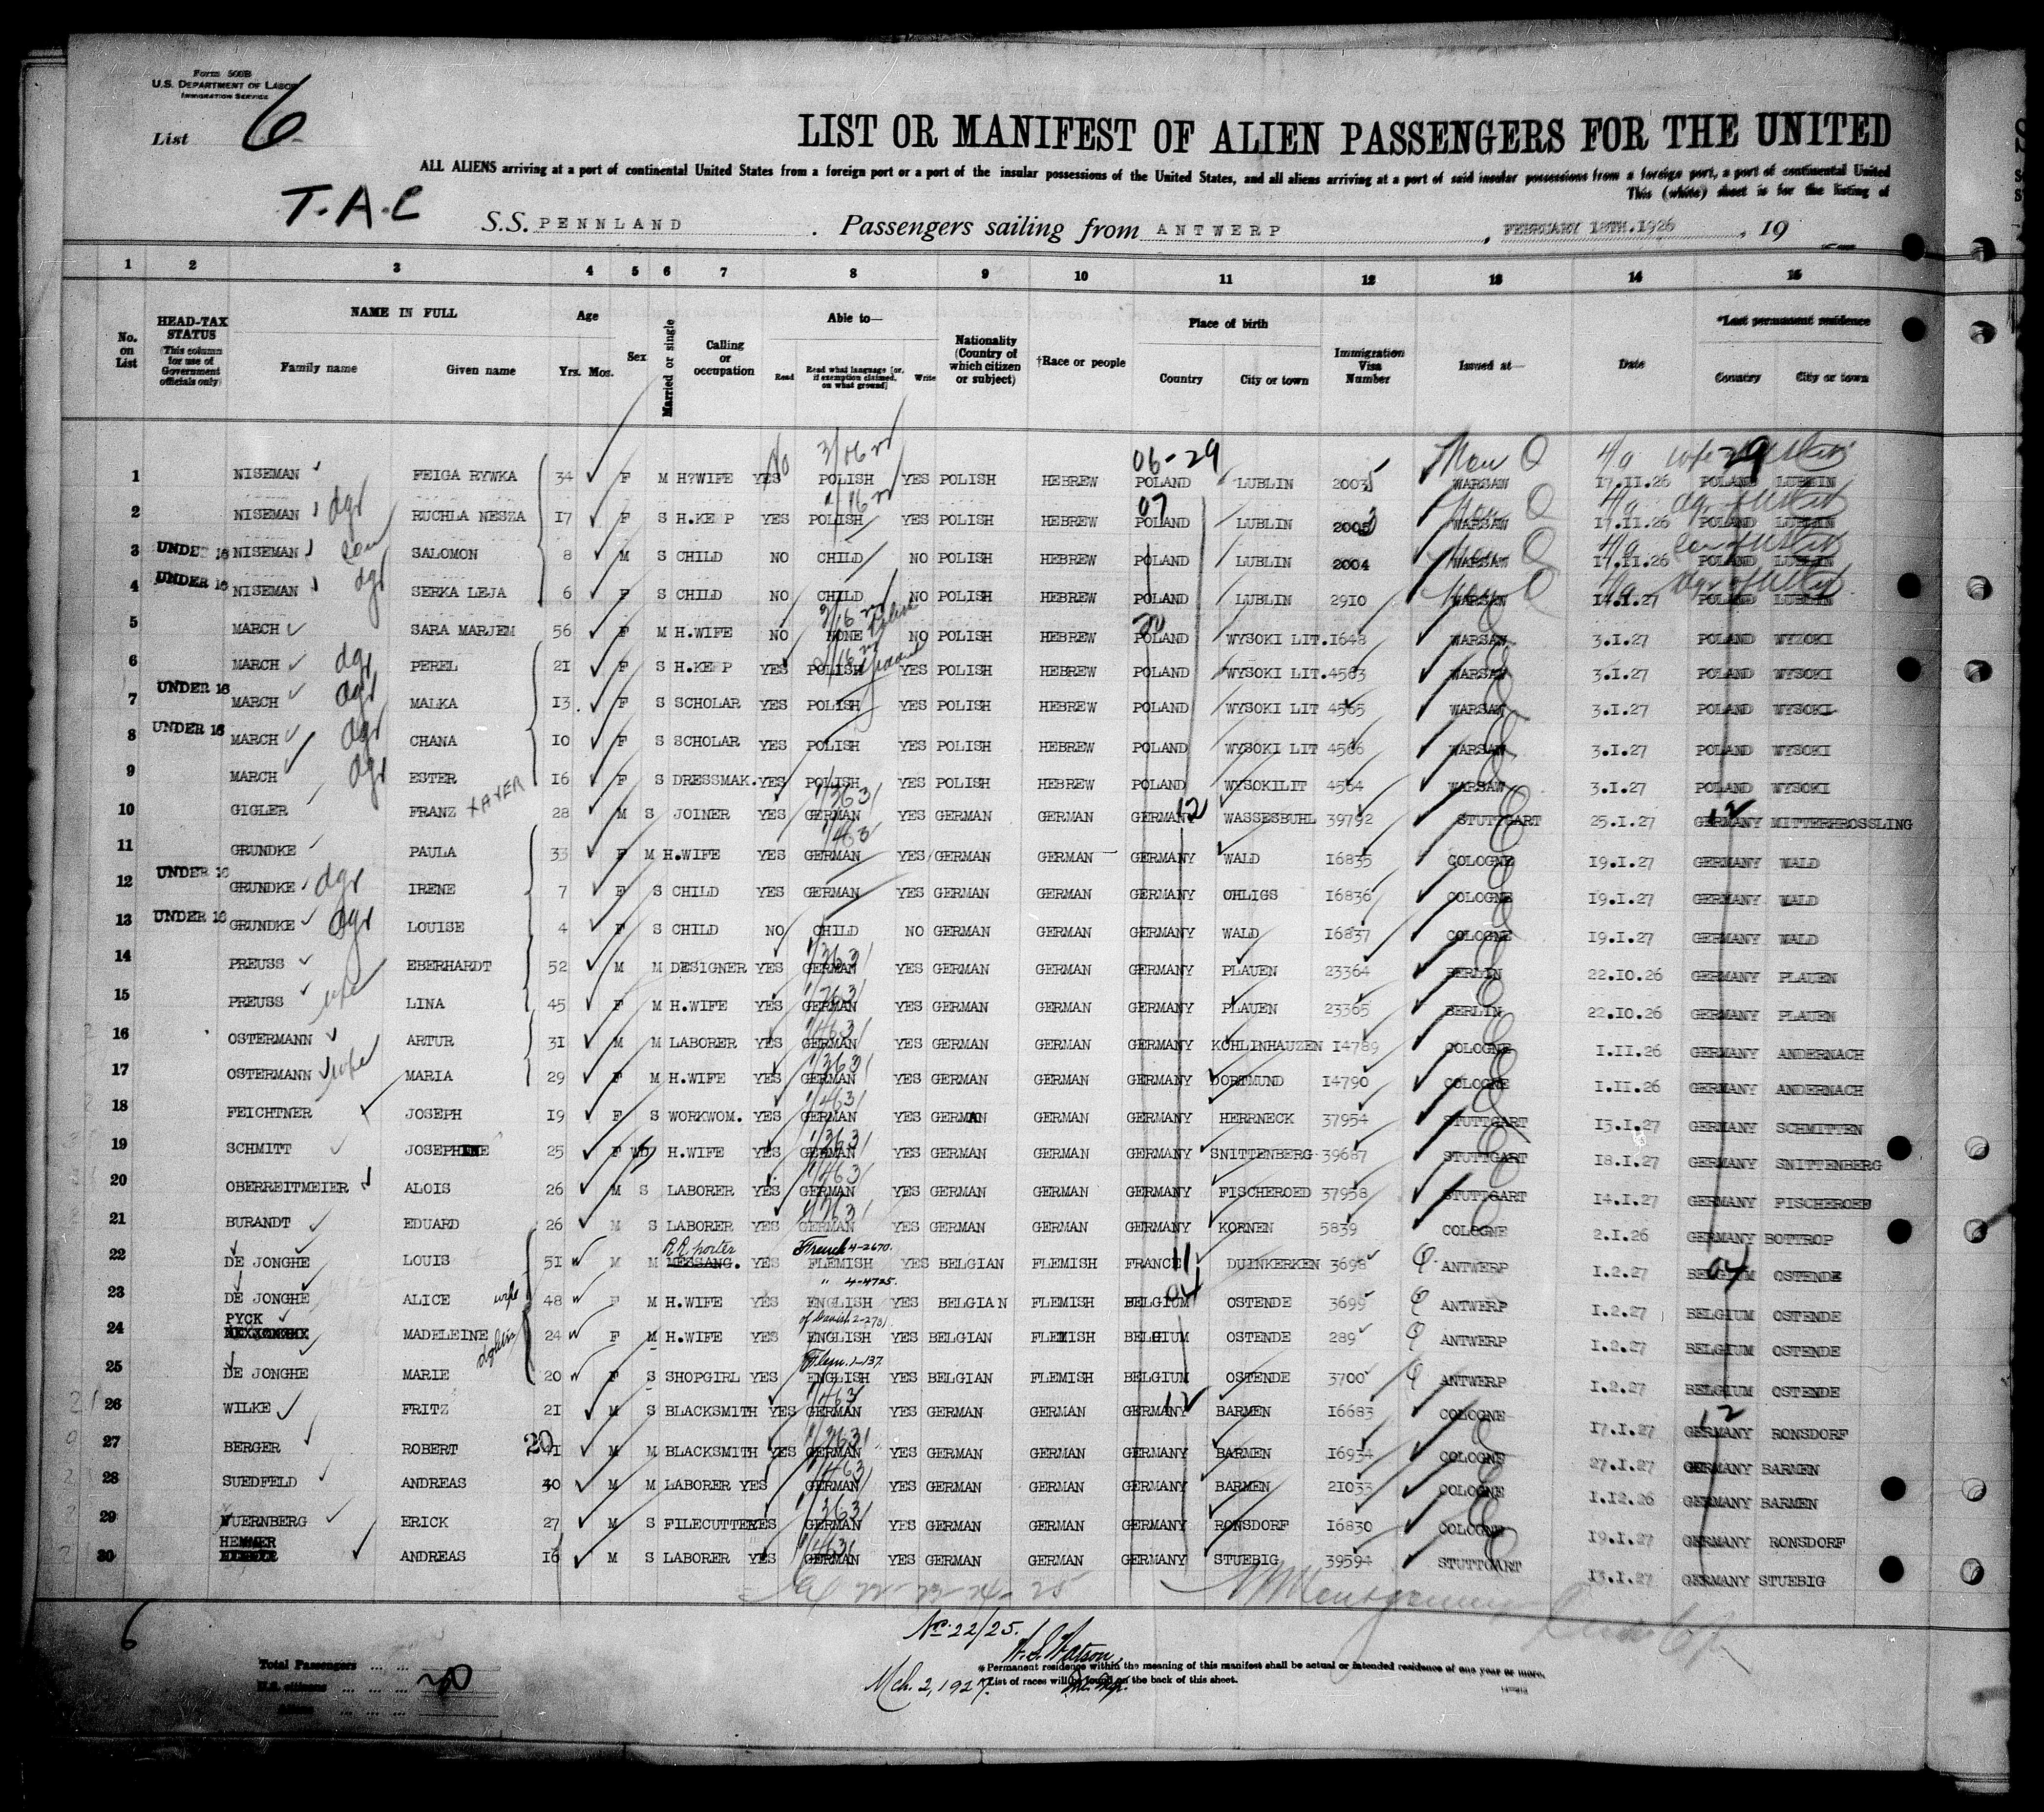 Form 500B
U.S. DEPARTMENT OF LABOR
IMMIGRATION SERVICE
List 6
LIST OR MANIFEST OF ALIEN PASSENGERS FOR THE UNITED
ALL ALIENS arriving at a port of continental United States from a foreign port or a port of the insular possessions of the United States, and all aliens arriving at a port of said insular possessions from a foreign port, a port of continental United
This (white) sheet is for the listing of
T.A.C
S.S. PENNLAND . Passengers sailing from ANTWERP , FEBRUARY 18TH.1926 , 19
1 2 3 4 5 6 7 8 9 10 11 12 13 14 15
No. on List
HEAD-TAX STATUS (This column for use of Government officials only)
NAME IN FULL Family name Given name
Age Yrs. Mos.
Sex
Married or single
Calling or occupation
Able to— Read Read what language [or, if exemption claimed, on what ground] Write
Nationality (Country of which citizen or subject)
†Race or people
Place of birth Country City or town
Immigration Visa Number
Issued at—
Date
*Last permanent residence Country City or town
1 NISEMAN FEIGA RYWKA 34 F M H?WIFE YES POLISH YES POLISH HEBREW POLAND LUBLIN 2003 WARSAW 17.II.26 POLAND LUBLIN
2 NISEMAN dgr RUCHLA NESZA 17 F S H.KEEP YES POLISH YES POLISH HEBREW POLAND LUBLIN 2005 WARSAW 17.II.26 POLAND LUBLIN
3 UNDER 16 NISEMAN son SALOMON 8 M S CHILD NO CHILD NO POLISH HEBREW POLAND LUBLIN 2004 WARSAW 17.II.26 POLAND LUBLIN
4 UNDER 16 NISEMAN dgr SERKA LEJA 6 F S CHILD NO CHILD NO POLISH HEBREW POLAND LUBLIN 2910 WARSAW 14.I.27 POLAND LUBLIN
5 MARCH SARA MARJEM 56 F M H.WIFE NO NONE NO POLISH HEBREW POLAND WYSOKI LIT. 1648 WARSAW 3.I.27 POLAND WYZOKI
6 MARCH dgr PEREL 21 F S H.KEEP YES POLISH YES POLISH HEBREW POLAND WYSOKI LIT. 4563 WARSAW 3.I.27 POLAND WYSOKI
7 UNDER 16 MARCH dgr MALKA 13. F S SCHOLAR YES POLISH YES POLISH HEBREW POLAND WYSOKI LIT 4565 WARSAW 3.I.27 POLAND WYSOKI
8 UNDER 16 MARCH dgr CHANA 10 F S SCHOLAR YES POLISH YES POLISH HEBREW POLAND WYSOKI LIT 4566 WARSAW 3.I.27 POLAND WYSOKI
9 MARCH dgr ESTER 16 F S DRESSMAK. YES POLISH YES POLISH HEBREW POLAND WYSOKILIT 4564 WARSAW 3.I.27 POLAND WYSOKI
10 GIGLER FRANZ XAVER 28 M S JOINER YES GERMAN YES GERMAN GERMAN GERMANY WASSESBUHL 39792 STUTTGART 25.I.27 GERMANY MITTERHROSSLING
11 GRUNDKE PAULA 33 F M H.WIFE YES GERMAN YES GERMAN GERMAN GERMANY WALD 16835 COLOGNE 19.I.27 GERMANY WALD
12 UNDER 16 GRUNDKE dgr IRENE 7 F S CHILD YES GERMAN YES GERMAN GERMAN GERMANY OHLIGS 16836 COLOGNE 19.I.27 GERMANY WALD
13 UNDER 16 GRUNDKE dgr LOUISE 4 F S CHILD NO CHILD NO GERMAN GERMAN GERMANY WALD 16837 COLOGNE 19.I.27 GERMANY WALD
14 PREUSS EBERHARDT 52 M M DESIGNER YES GERMAN YES GERMAN GERMAN GERMANY PLAUEN 23364 BERLIN 22.10.26 GERMANY PLAUEN
15 PREUSS wife LINA 45 F M H.WIFE YES GERMAN YES GERMAN GERMAN GERMANY PLAUEN 23365 BERLIN 22.10.26 GERMANY PLAUEN
16 OSTERMANN ARTUR 31 M M LABORER YES GERMAN YES GERMAN GERMAN GERMANY KOHLINHAUZEN 14789 COLOGNE 1.II.26 GERMANY ANDERNACH
17 OSTERMANN wife MARIA 29 F M H.WIFE YES GERMAN YES GERMAN GERMAN GERMANY DORTMUND 14790 COLOGNE 1.II.26 GERMANY ANDERNACH
18 FEICHTNER JOSEPH 19 F S WORKWOM. YES GERMAN YES GERMAN GERMAN GERMANY HERRNECK 37954 STUTTGART 13.I.27 GERMANY SCHMITTEN
19 SCHMITT JOSEPHINE 25 F WD H.WIFE YES GERMAN YES GERMAN GERMAN GERMANY SNITTENBERG 39687 STUTTGART 18.I.27 GERMANY SNITTENBERG
20 OBERREITMEIER ALOIS 26 M S LABORER YES GERMAN YES GERMAN GERMAN GERMANY FISCHEROED 37958 STUTTGART 14.I.27 GERMANY FISCHEROED
21 BURANDT EDUARD 26 M S LABORER YES GERMAN YES GERMAN GERMAN GERMANY KORNEN 5839 COLOGNE 2.I.26 GERMANY BOTTROP
22 DE JONGHE LOUIS 51 M M RR porter MESSANG. YES French 4-2670. FLEMISH YES BELGIAN FLEMISH FRANCE DUINKERKEN 3698 ANTWERP 1.2.27 BELGIUM OSTENDE
23 DE JONGHE ALICE wife 48 F M H.WIFE YES " 4-4725. ENGLISH YES BELGIAN FLEMISH BELGIUM OSTENDE 3699 ANTWERP 1.2.27 BELGIUM OSTENDE
24 PYCK MADELEINE 24 F M H.WIFE YES ENGLISH YES BELGIAN FLEMISH BELGIUM OSTENDE 289 ANTWERP 1.2.27 BELGIUM OSTENDE
25 DE JONGHE MARIE 20 F S SHOPGIRL YES Flem. 1-137. ENGLISH YES BELGIAN FLEMISH BELGIUM OSTENDE 3700 ANTWERP 1.2.27 BELGIUM OSTENDE
26 WILKE FRITZ 21 M S BLACKSMITH YES GERMAN YES GERMAN GERMAN GERMANY BARMEN 16683 COLOGNE 17.I.27 GERMANY RONSDORF
27 BERGER ROBERT 20 M M BLACKSMITH YES GERMAN YES GERMAN GERMAN GERMANY BARMEN 16934 COLOGNE 27.I.27 GERMANY BARMEN
28 SUEDFELD ANDREAS 40 M M LABORER YES GERMAN YES GERMAN GERMAN GERMANY BARMEN 21033 COLOGNE 1.12.26 GERMANY BARMEN
29 NUERNBERG ERICK 27 M S FILECUTTER YES GERMAN YES GERMAN GERMAN GERMANY RONSDORF 16830 COLOGNE 19.I.27 GERMANY RONSDORF
30 HEMMER ANDREAS 16 M S LABORER YES GERMAN YES GERMAN GERMAN GERMANY STUEBIG 39594 STUTTGART 13.I.27 GERMANY STUEBIG
6
No. 22/25.
W.S. Watson,
Mch. 2, 1927.
Total Passengers ... ...
U.S. citizens ... ... ...
Aliens ... ... ...
30
* Permanent residence within the meaning of this manifest shall be actual or intended residence of one year or more.
† List of races will be found on the back of this sheet.